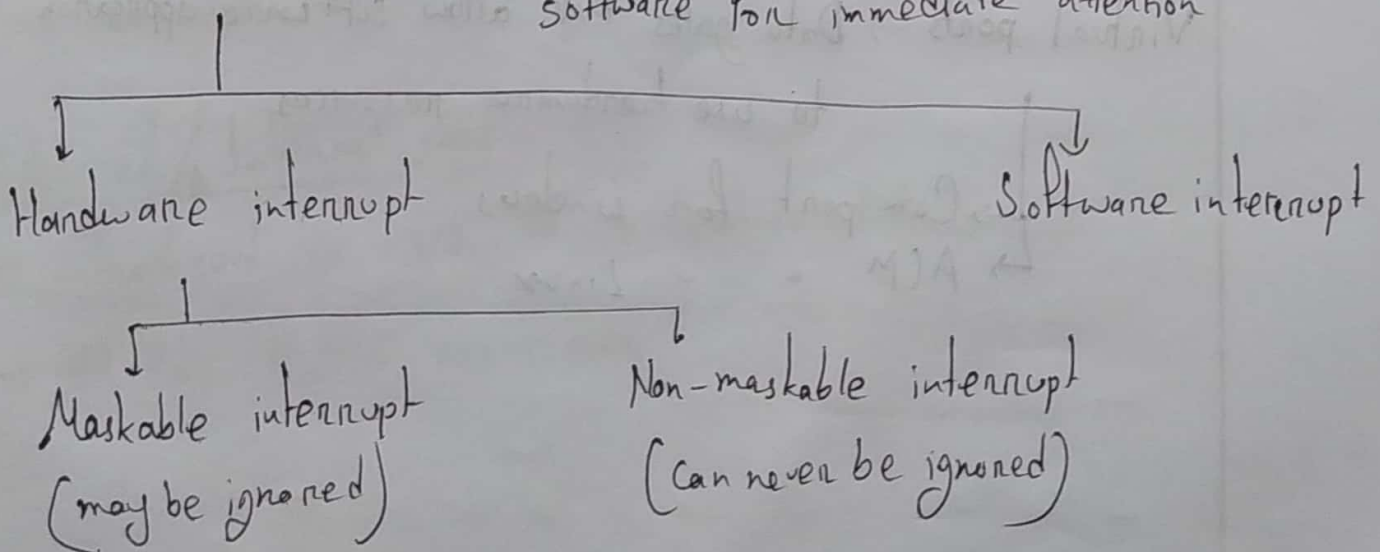 software for immediate attention
Hardware interrupt
Software interrupt
Maskable interrupt
Non-maskable interrupt
(may be ignored)
(Can never be ignored)